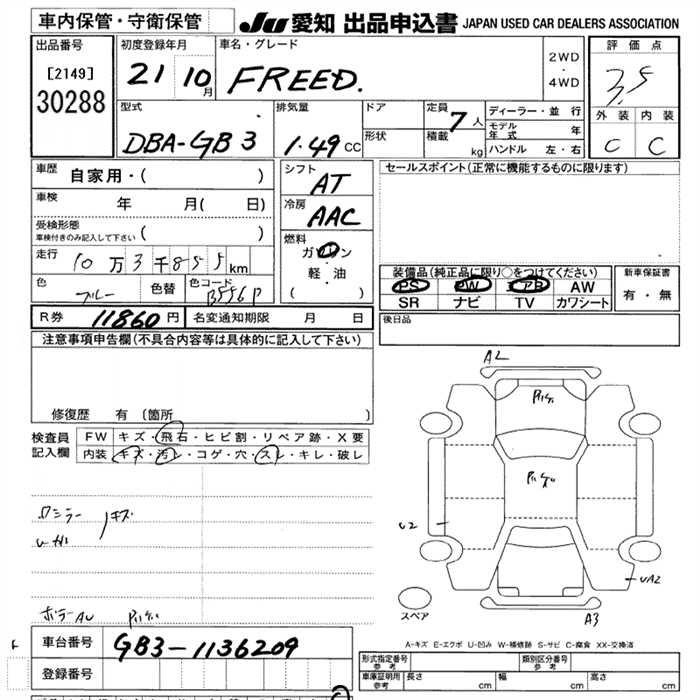 車内保管・守衛保管 JU 愛知 出品申込書 JAPAN USED CAR DEALERS ASSOCIATION
出品番号
[2149]
30288
初度登録年月
21 10月
車名・グレード
FREED.
2WD
・
4WD
評価点
3.5
外装 内装
C C
型式
DBA-GB3
排気量
1.49 CC
ドア
形状
定員
7人
積載
kg
ディーラー・並行
モデル年式 年
ハンドル 左・右
車歴
自家用・( )
車検
年 月( 日)
受検形態
車検付きのみ記入して下さい ( )
走行
10万3千855km
色
ブルー
色替
色コード
B556P
シフト
AT
冷房
AAC
燃料
ガソリン
軽・油
( )
セールスポイント(正常に機能するものに限ります)
装備品(純正品に限り○をつけてください)
PS PW エアB AW
SR ナビ TV カワシート
新車保証書
有・無
R券 11860円 名変通知期限 月 日
後日品
注意事項申告欄(不具合内容等は具体的に記入して下さい)
修復歴 有〔箇所 〕
検査員記入欄
FW キズ・飛石・ヒビ割・リペア跡・X要
内装 キズ・汚レ・コゲ・穴・スレ・キレ・破レ
キズ
A2
U2
UA2
A3
スペア
車台番号
GB3-1136209
登録番号
A-キズ E-エクボ U-凹み W-補修跡 S-サビ C-腐食 XX-交換済
形式指定番号
参考
類別区分番号
参考
車庫証明用
参考
長さ cm 幅 cm 高さ cm